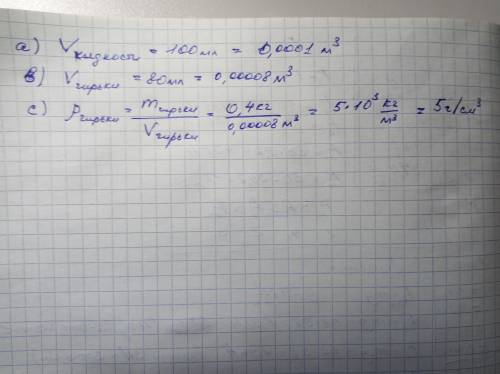 a) V жидкости = 100 мл = 0,0001 м³
в) V гирьки = 80 мл = 0,00008 м³
c) ρ гирьки = m гирьки / V гирьки = 0,4 кг / 0,00008 м³ = 5·10³ кг/м³ = 5 г/см³